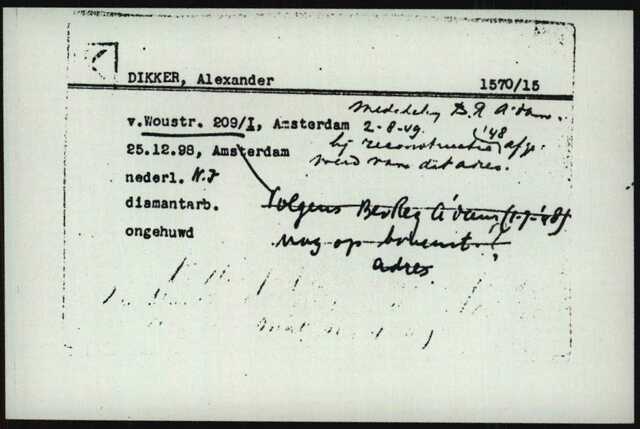 DIKKER, Alexander 1570/15
v.Woustr. 209/I, Amsterdam
Mededeling B.R A'dam.
2-8-49.
25.12.98, Amsterdam
bij reconstructie '48 afg.
werd van dit adres.
nederl. N.I
diamantarb.
Volgens BevReg A'dam (1-7-'48)
ongehuwd
nog op bovenst.
adres